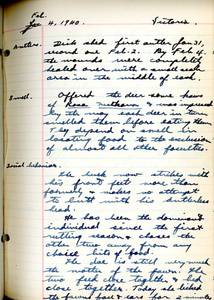 Feb.
Dec 4, 1940. Victoria
Antlers. Dick shed first antler Jan 31,
second one Feb. 2. By Feb 4
the wounds were completely
healed over with a small
area in the middle of each.
Smell. Offered the deer some
of Rosa
by the way each deer in turn
smelled them before eating them
They depend on smell in
locating food to the exclusion
of almost all other faculties.
Social behavior.
The buck now strikes with
his front feet more than
formerly makes no attempt
to butt with his antlerless
head.
He has been the dominant
individual since the first
rutting season & chases the
other two away from any
choice bits of food.
The doe is still very much
the mother of the fawn. The
two feed close together & bed
close together. Today she licked
the fawns face & ears for